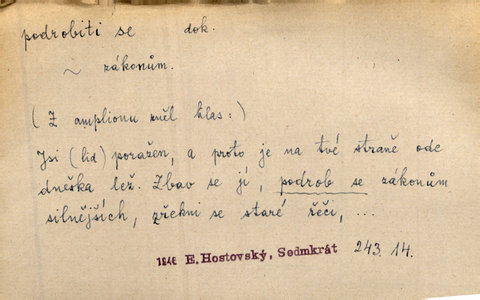 podrobiti se dok.
~ zákonům.
(Z amplionu zněl hlas:)
Jsi (lid) poražen, a proto je na tvé straně ode
dneška lež. Zbav se jí, podrob se zákonům
silnějších, zřekni se staré řeči, ...
1946 E. Hostovský, Sedmkrát 243.14.